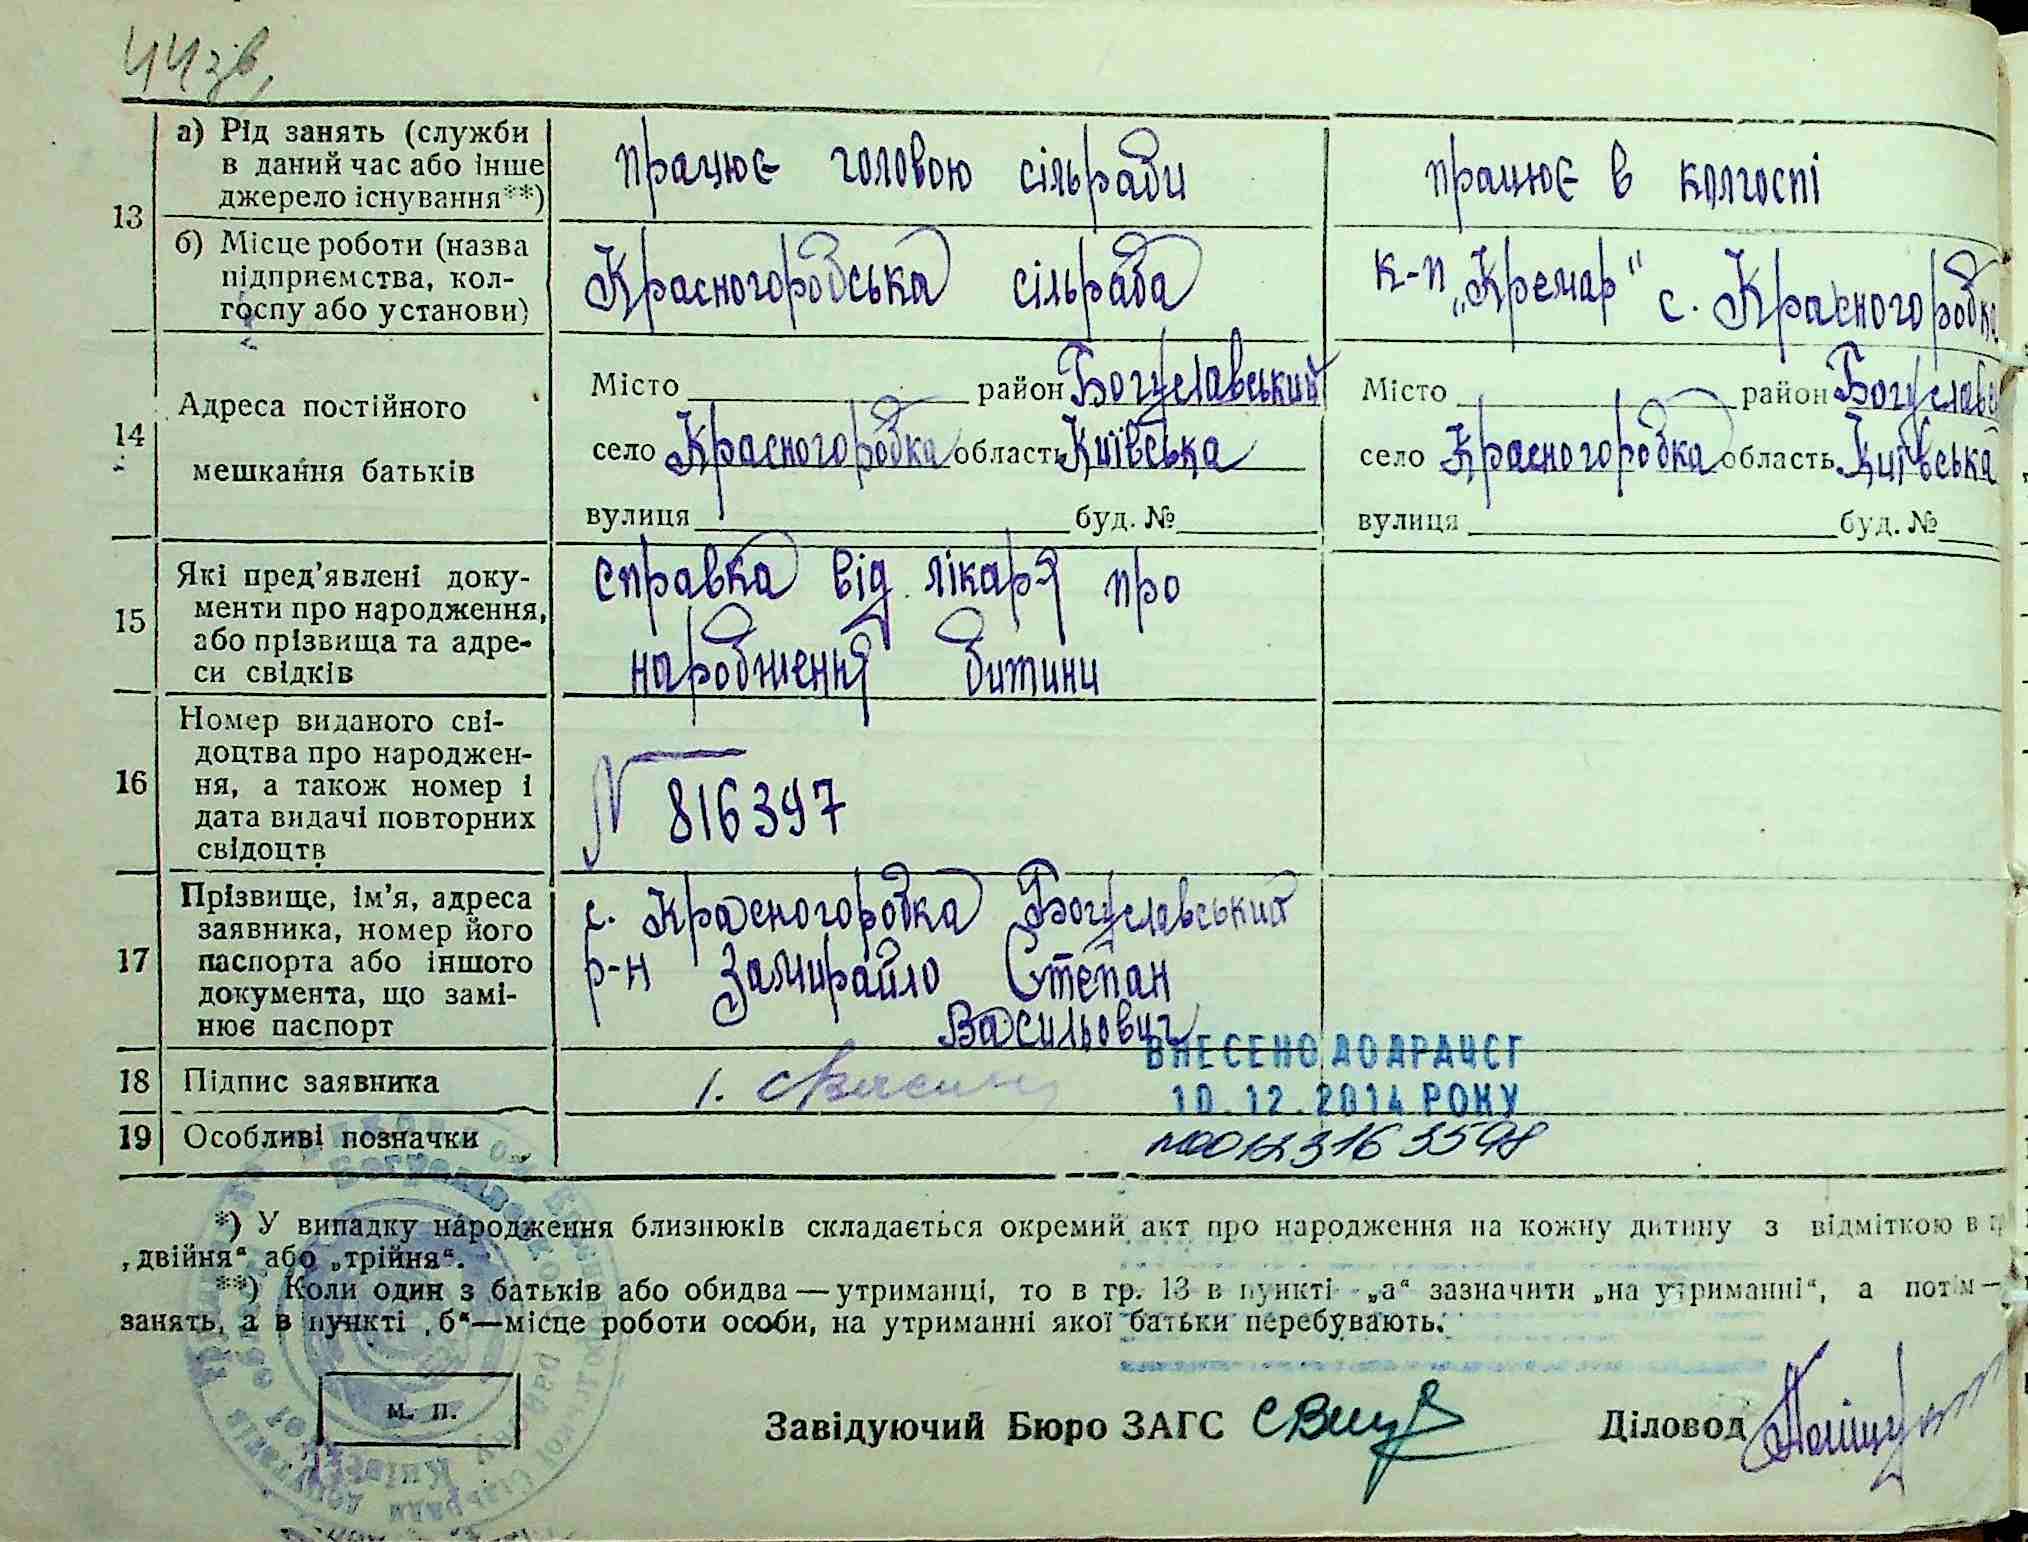 44зв,
13
а) Рід занять (служби
в даний час або інше
джерело існування**)
працює головою сільради
працює в колгоспі
б) Місце роботи (назва
підприємства, кол-
госпу або установи)
Красногородська сільрада
к-п „Кремар" с. Красногородка
14
Адреса постійного
мешкання батьків
Місто район Богуславський
село Красногородка область Київська
вулиця буд. №
Місто район Богуславс
село Красногородка область Київська
вулиця буд. №
15
Які пред'явлені доку-
менти про народження,
або прізвища та адре-
си свідків
справка від лікаря про
народження дитини
16
Номер виданого сві-
доцтва про народжен-
ня, а також номер і
дата видачі повторних
свідоцтв
N 816397
17
Прізвище, ім'я, адреса
заявника, номер його
паспорта або іншого
документа, що замі-
нює паспорт
с. Красногородка Богуславський
р-н Замирайло Степан
Васильович
18
Підпис заявника
ВНЕСЕНО ДО ДРАЦСГ
10.12.2014 РОКУ
19
Особливі позначки
№00123163598
*) У випадку народження близнюків складається окремий акт про народження на кожну дитину з відміткою в г
„двійня" або „трійня".
**) Коли один з батьків або обидва—утриманці, то в гр. 13 в пункті „а" зазначити „на утриманні", а потім—
занять, а в пункті „б"—місце роботи особи, на утриманні якої батьки перебувають.
м. п.
Завідуючий Бюро ЗАГС
Діловод